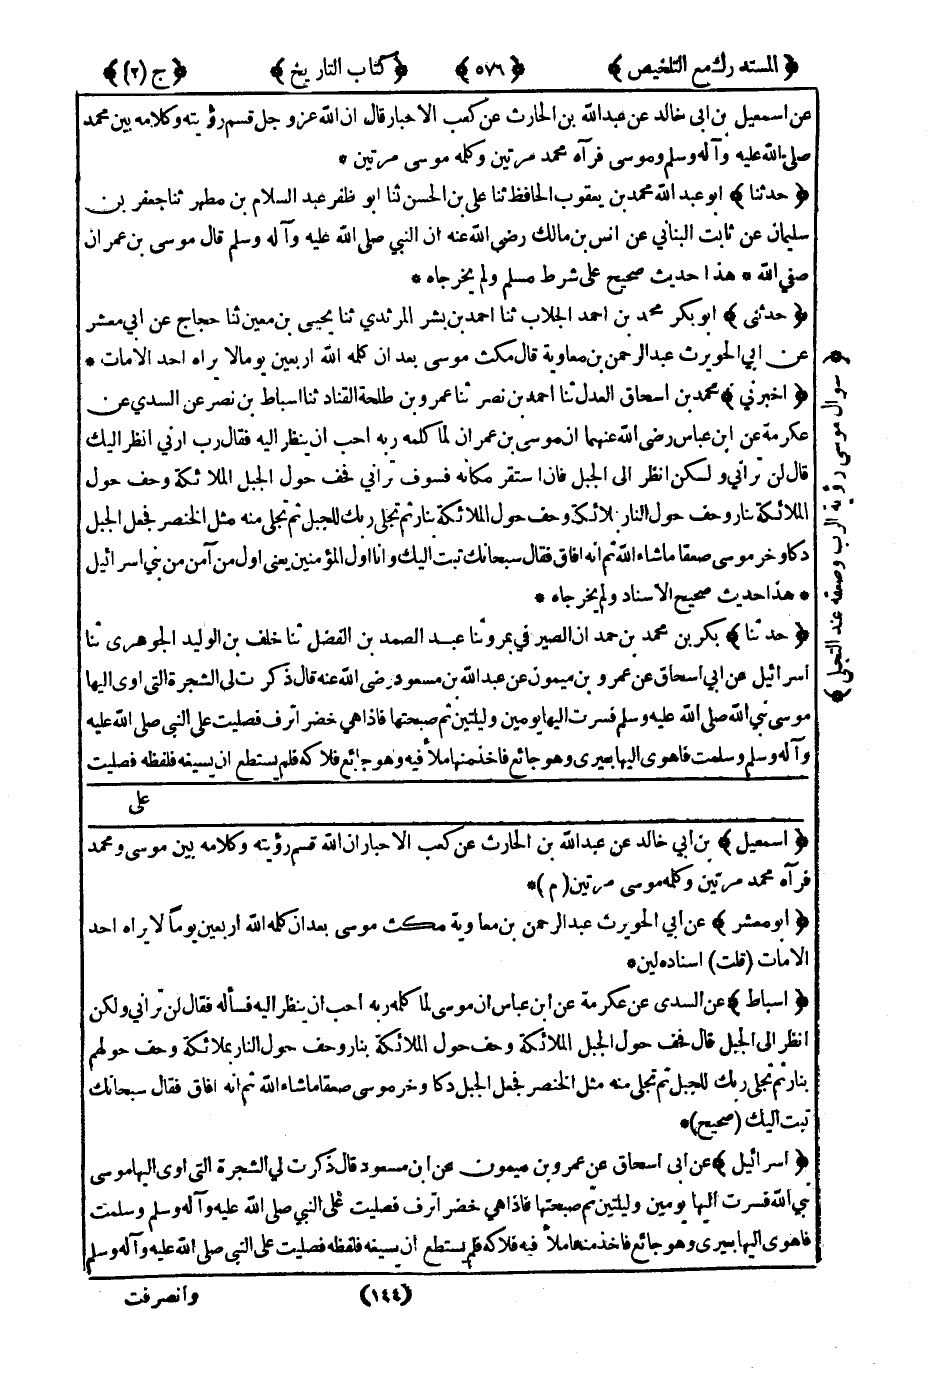 ﴿ المستدرك مع التلخيص ﴾ ﴿ ٥٧٦ ﴾ ﴿ كتاب التاريخ ﴾ ﴿ ج (٢) ﴾
عن اسمعيل بن ابى خالد عن عبدالله بن الحارث عن كعب الاحبار قال ان الله عز و جل قسم رؤيته وكلامه بين محمد
صلى الله عليه وآله وسلم وموسى فرآه محمد مرتين وكلمه موسى مرتين *
﴿ حدثنا ﴾ ابوعبد الله محمد بن يعقوب الحافظ ثنا على بن الحسن ثنا ابو ظفر عبد السلام بن مطهر ثنا جعفر بن
سليمان عن ثابت البناني عن انس بن مالك رضى الله عنه ان النبي صلى الله عليه وآله وسلم قال موسى بن عمران
صفي الله * هذا حديث صحيح على شرط مسلم ولم يخرجاه *
﴿ حدثنى ﴾ ابوبكر محمد بن احمد الجلاب ثنا احمد بن بشر المرثدي ثنا يحيى بن معين ثنا حجاج عن ابي معشر
عن ابي الحويرث عبدالرحمن بن معاوية قال مكث موسى بعد ان كلمه الله اربعين يوما لا يراه احد الا مات *
﴿ اخبرني ﴾ محمد بن اسحاق العدل ثنا احمد بن نصر ثنا عمرو بن طلحة القناد ثنا اسباط بن نصر عن السدي عن
عكرمة عن ابن عباس رضى الله عنهما ان موسى بن عمران لما كلمه ربه احب ان ينظر اليه فقال رب ارني انظر اليك
قال لن تراني ولكن انظر الى الجبل فان استقر مكانه فسوف تراني فحف حول الجبل الملائكة وحف حول
الملائكة بنار وحف حول النار بلائكة وحف حول الملائكة بنار ثم تجلى ربك للجبل ثم تجلى منه مثل الخنصر فجعل الجبل
دكا وخر موسى صعقا ماشاء الله ثم انه افاق فقال سبحانك تبت اليك وانا اول المؤمنين يعنى اول من آمن من بني اسرائيل
* هذا حديث صحيح الاسناد ولم يخرجاه *
﴿ حدثنا ﴾ بكر بن محمد بن حمد ان الصيرفى بمرو ثنا عبد الصمد بن الفضل ثنا خلف بن الوليد الجوهرى ثنا
اسرائيل عن ابي اسحاق عن عمرو بن ميمون عن عبدالله بن مسعود رضى الله عنه قال ذكرت لي الشجرة التى اوى اليها
موسى نبي الله صلى الله عليه وسلم فسرت اليها يومين وليلتين ثم صبحتها فاذا هي خضرا ترف فصليت على النبي صلى الله عليه
وآله وسلم وسلمت فاهوى اليها بعيرى وهو جائع فاخذ منها ملأ فيه وهو جائع فلاكه فلم يستطع ان يسيغه فلفظه فصليت
على
﴿ سوال موسى رؤية الرب وصعقه عند التجلى ﴾
﴿ اسمعيل ﴾ بن أبي خالد عن عبدالله بن الحارث عن كعب الاحبار ان الله قسم رؤيته وكلامه بين موسى ومحمد
فرآه محمد مرتين وكلمه موسى مرتين (م) *
﴿ ابومعشر ﴾ عن ابي الحويرث عبدالرحمن بن معاوية مكث موسى بعد ان كلمه الله اربعين يوماً لا يراه احد
الا مات (قلت) اسناده لين *
﴿ اسباط ﴾ عن السدى عن عكرمة عن ابن عباس ان موسى لما كلمه ربه احب ان ينظر اليه فسأله فقال لن تراني ولكن
انظر الى الجبل قال فحف حول الجبل الملائكة وحف حول الملائكة بنار وحف حول النار بملائكة وحف حولهم
بنار ثم تجلى ربك للجبل ثم تجلى منه مثل الخنصر فجعل الجبل دكا وخر موسى صعقا ماشاء الله ثم انه افاق فقال سبحانك
تبت اليك (صحيح) *
﴿ اسرائيل ﴾ عن ابى اسحاق عن عمرو بن ميمون عن ابن مسعود قال ذكرت لي الشجرة التى اوى اليها موسى
نبي الله فسرت اليها يومين وليلتين ثم صبحتها فاذا هي خضرا ترف فصليت على النبي صلى الله عليه وآله وسلم وسلمت
فاهوى اليها بعيرى وهو جائع فاخذ منها ملأ فيه فلاكه فلم يستطع ان يسيغه فلفظه فصليت على النبي صلى الله عليه وآله وسلم
(١٤٤) وانصرفت